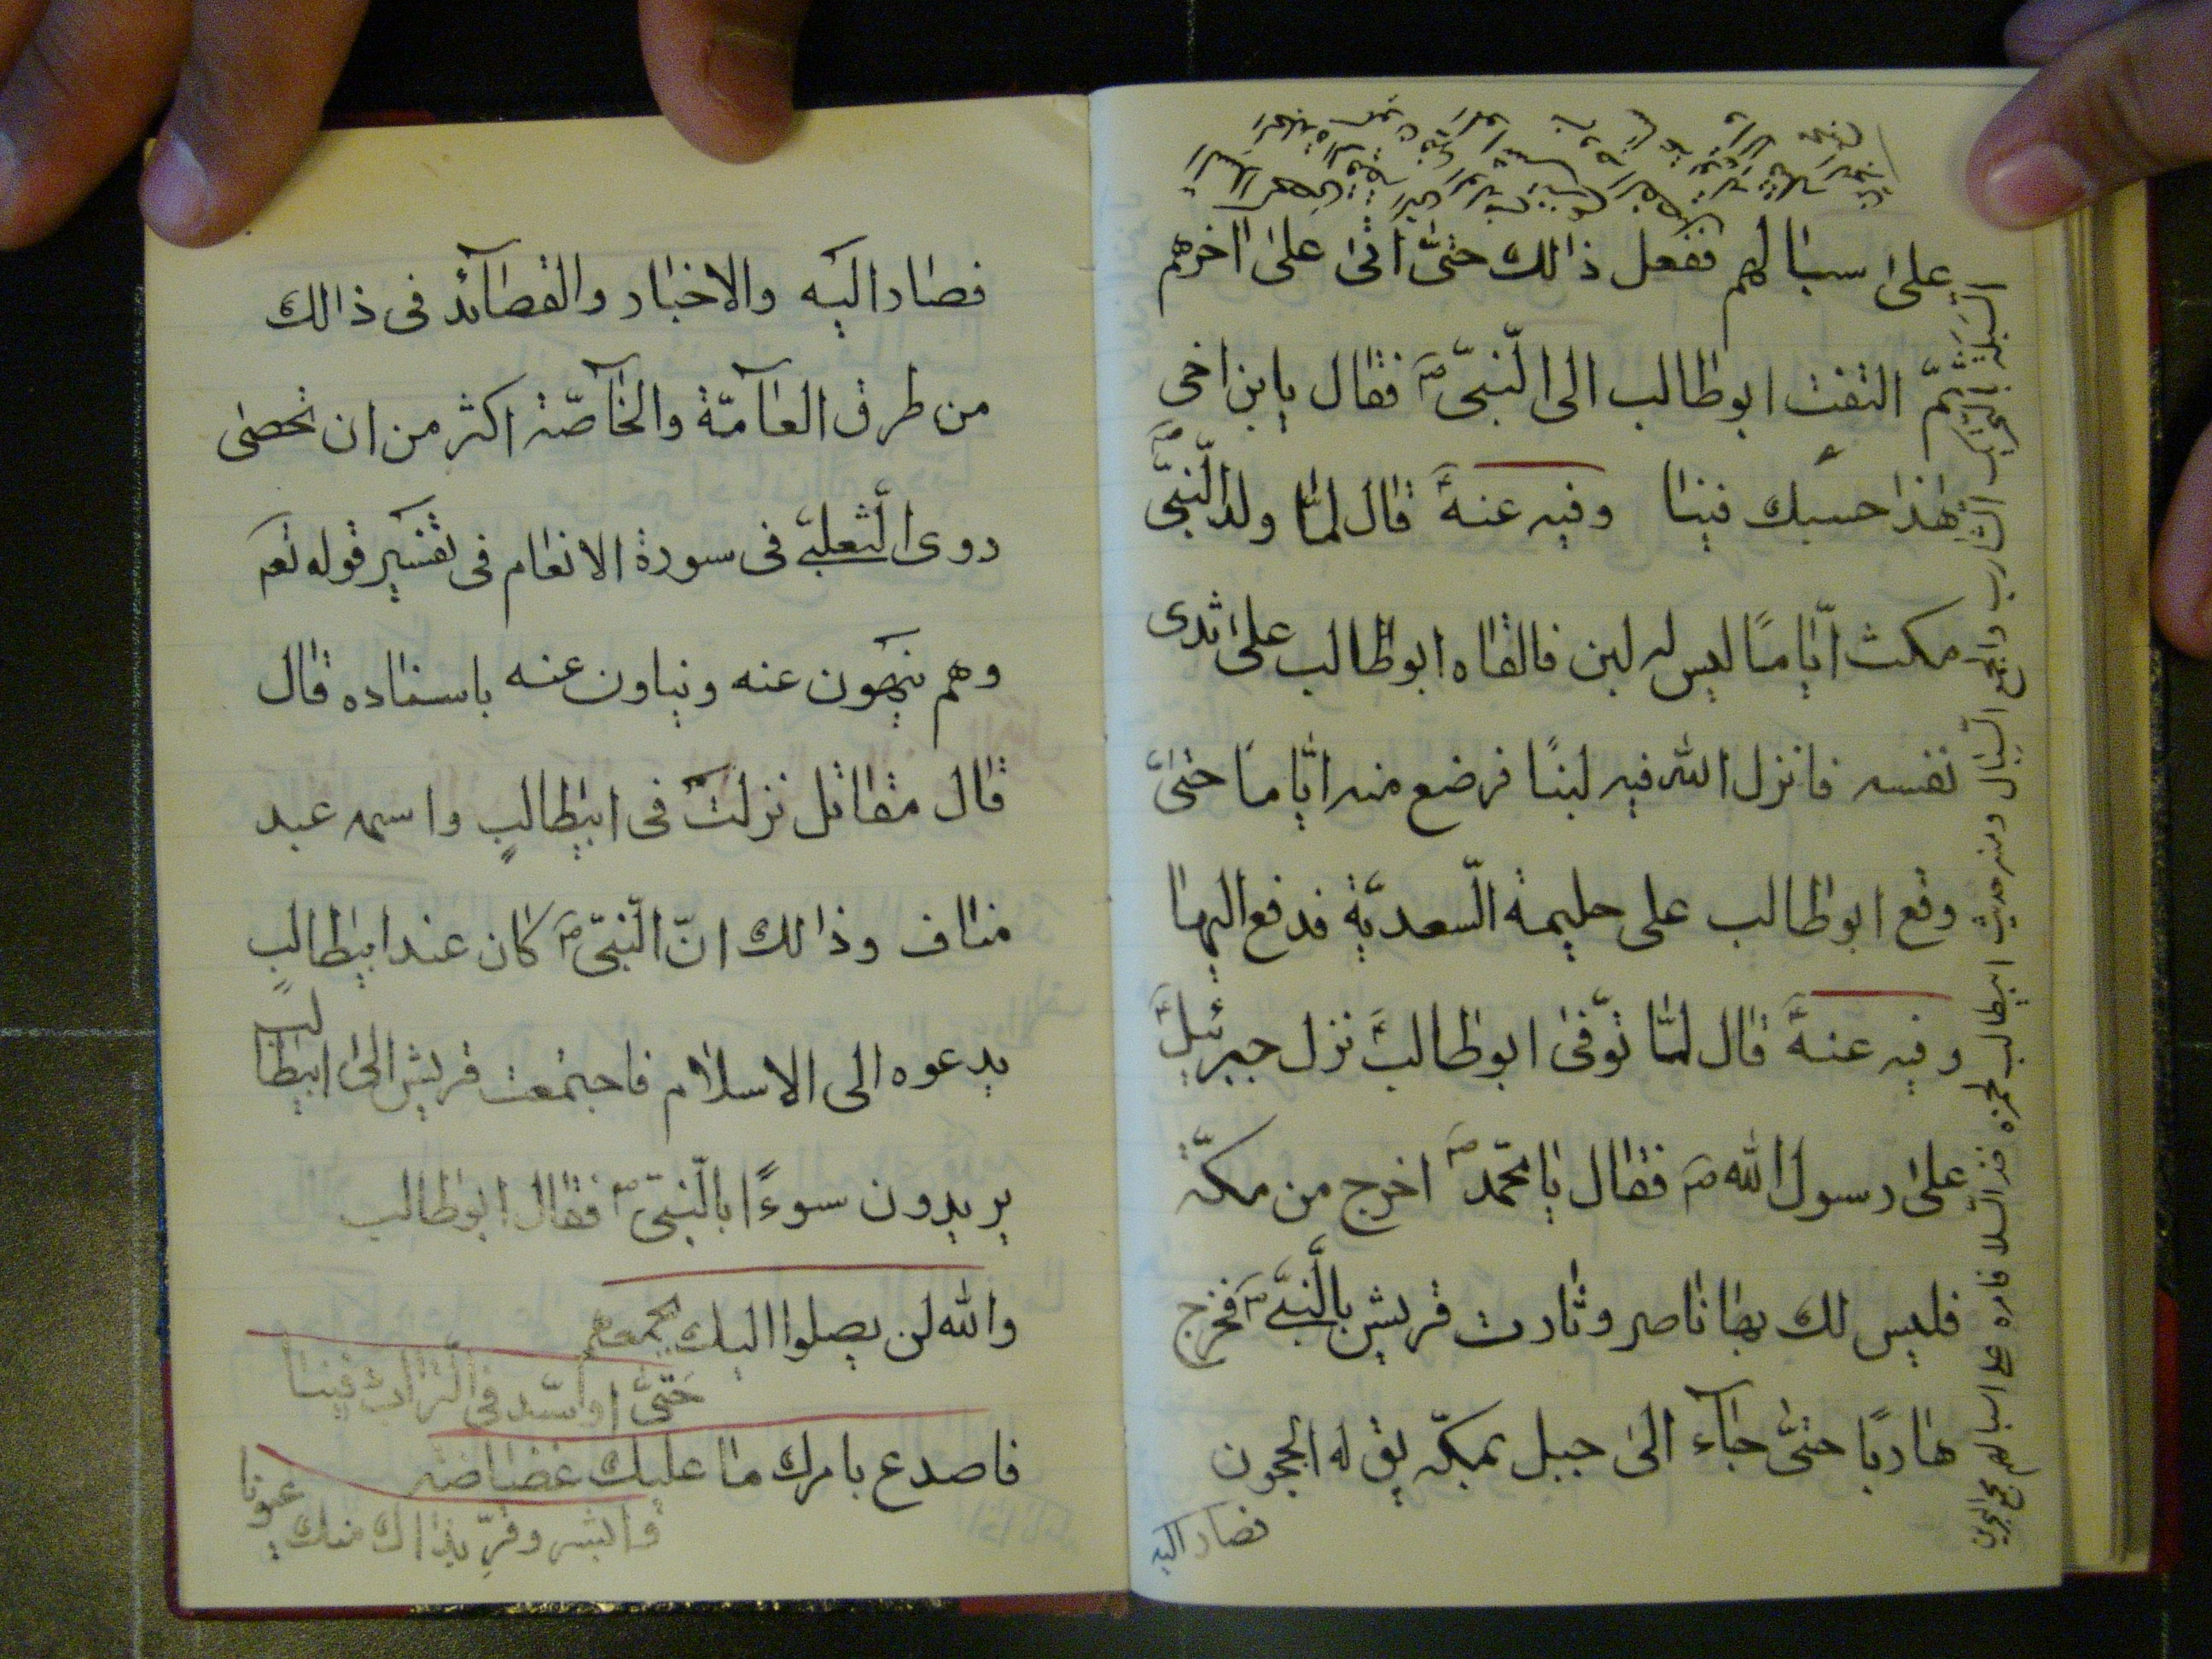 على سبالهم ففعل ذالك حتى اتى على اخرهم
ثمّ التفت ابوطالب الى النّبىّ ص فقال يابن اخى
هذا حسبك فينا وفيه عنه ع قال لمّا ولد النّبىّ ص
مكث ايّامًا ليس له لبن فالقاه ابوطالب على ثدى
نفسه فانزل الله فيه لبنًا فرضع منه ايّامًا حتىّ
وقع ابوطالب على حليمة السّعديّة فدفع اليها
وفيه عنه ع قال لمّا توّفى ابوطالب ع نزل جبرئيل ع
على رسول الله ص فقال يا محمّد ص اخرج من مكّة
فليس لك بها ناصر وثارت قريش بالنّبىّ ص فخرج
هاربًا حتىّ جآء الى جبل بمكّة يق له الحجون
فصار اليه
السّبلة بالتّحريك الشّارب والجمع السّبال ومنه حديث ابيطالب لحمزه خذ السّلا فامره على اسبالهم مجمع البحرين
فصار اليه والاخبار والقصآئد فى ذالك
من طرق العآمّة والخآصّة اكثر من ان تحصى
روى الثّعلبى فى سورة الانعام فى تفسير قوله تعم
وهم ينهون عنه ويناون عنه باسناده قال
قال مقاتل نزلت فى ابيطالب واسمه عبد
مناف وذالك انّ النّبىّ ص كان عند ابيطالب
يدعوه الى الاسلام فاجتمعت قريش الى ابيطالب
يريدون سوءًا بالنّبىّ ص فقال ابوطالب
والله لن يصلوا اليك بجمعهم
حَتىّ اوسّد فى التّراب دفينا
فاصدع بامرك ما عليك غضاضة
وابشر وقرّ بذاك منك عيونا